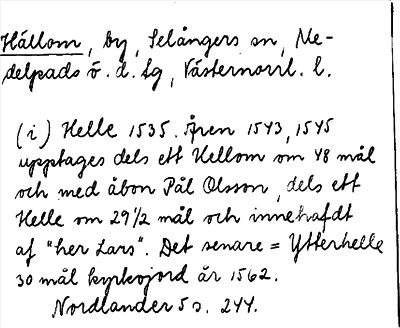 Hällom, by, Selångers sn, Me-
delpads ö. d. tg, Västernorrl. l.
(i) Helle 1535. Åren 1543, 1545
upptages dels ett Hellom om 48 mål
och med åbon Pål Olsson, dels ett
Helle om 29 1/2 mål och innehafdt
af "her Lars". Det senare = Ytterhelle
30 mål kyrkojord år 1562.
Nordlander 5 s. 244.